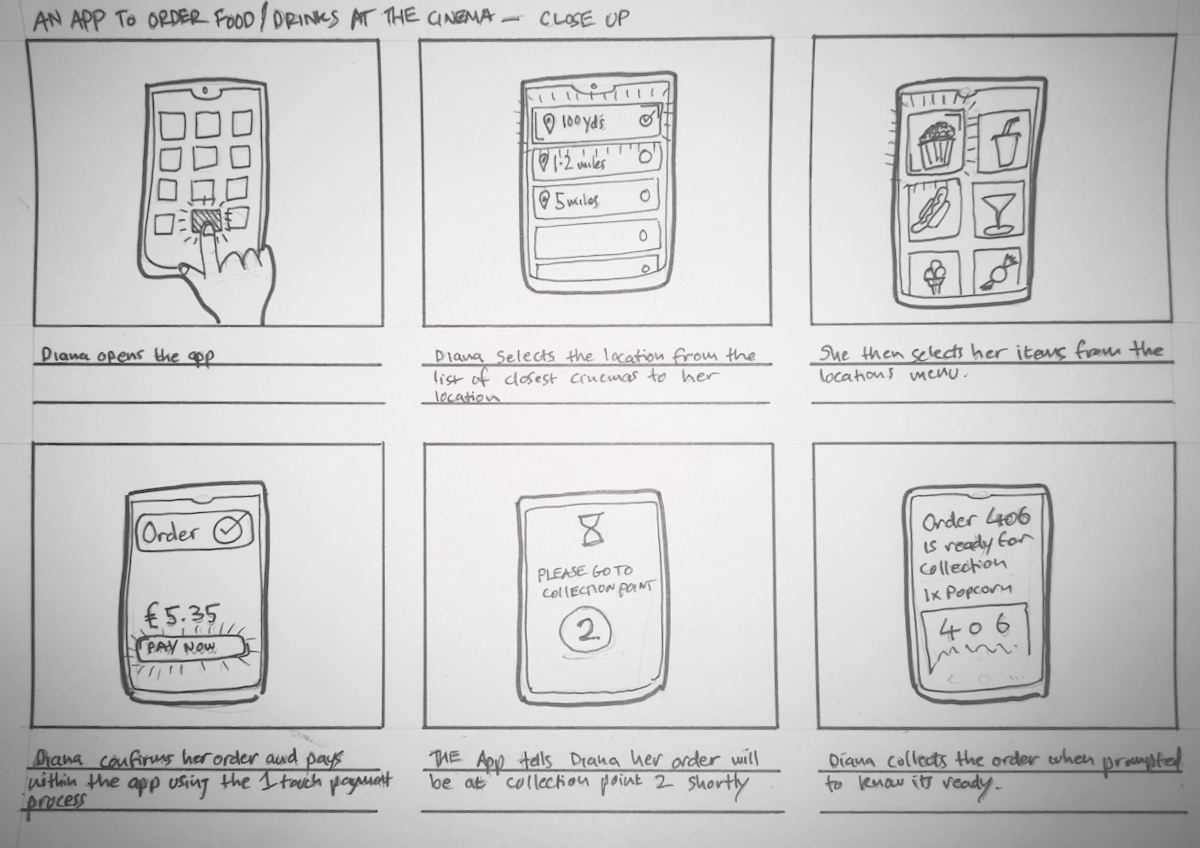 AN APP TO ORDER FOOD/DRINKS AT THE CINEMA — CLOSE UP
100yds
1.2 miles
5 miles
Diana opens the app
Diana Selects the location from the
list of closest cinemas to her
location
She then selects her items from the
locations menu.
Order
€5.35
PAY NOW
PLEASE GO TO
COLLECTION POINT
2
Order 406
is ready for
collection
1x Popcorn
406
Diana confirms her order and pays
within the app using the 1 touch payment
process
THE App tells Diana her order will
be at collection point 2 shortly
Diana collects the order when prompted
to know its ready.